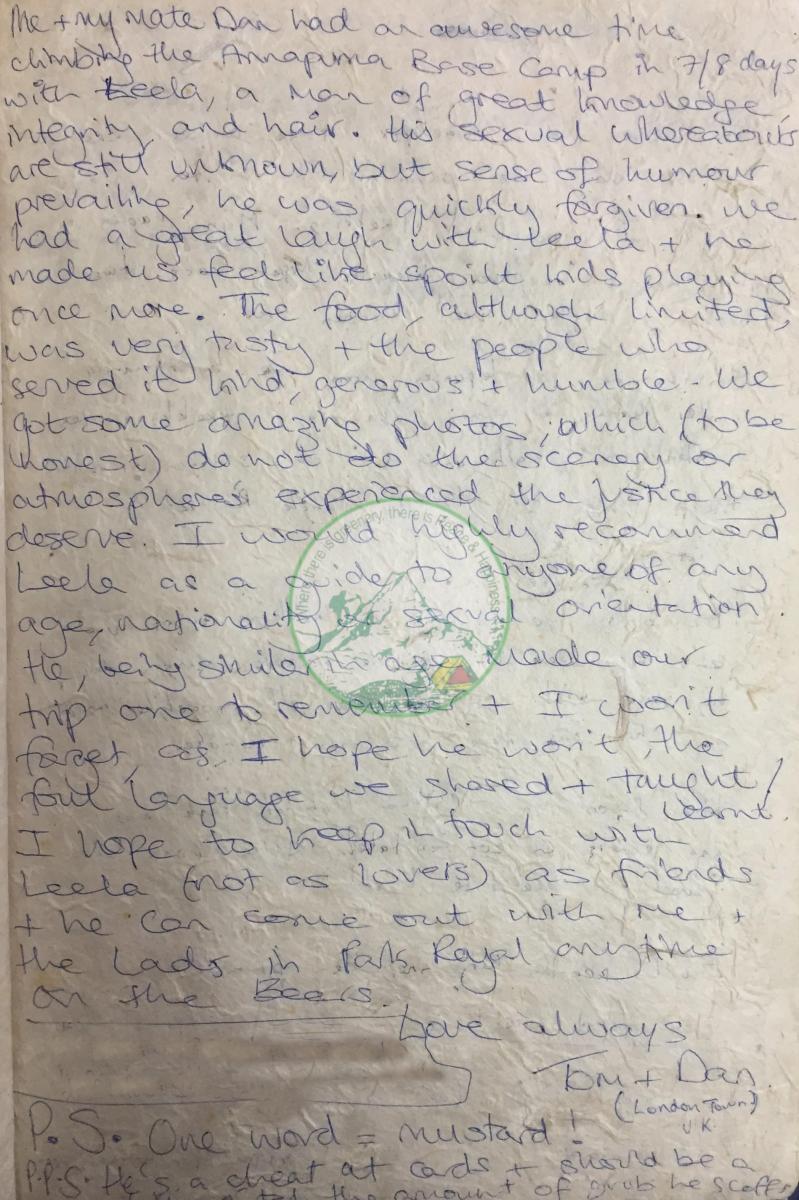 Me + my mate Dan had an awesome time
climbing the Annapurna Base Camp in 7/8 days
with Leela, a man of great knowledge,
integrity and hair. His sexual whereabouts
are still unknown, but sense of humour
prevailing, he was quickly forgiven. We
had a great laugh with Leela + he
made us feel like spoilt kids playing
once more. The food, although limited,
was very tasty + the people who
served it kind, generous + humble. We
got some amazing photos, which (to be
honest) do not do the scenery or
atmospheres experienced the justice they
deserve. I would highly recommend
Leela as a guide to anyone of any
age, nationality or sexual orientation.
He, being similar in age made our
trip one to remember + I won't
forget, as I hope he won't, the
foul language we shared + taught/
learnt.
I hope to keep in touch with
Leela (not as lovers) as friends
+ he can come out with me +
the Lads in Park Royal anytime
on the Beers.
Love always
Tom + Dan.
(London Town)
UK
P.S. One word = mustard!
P.P.S. He's a cheat at cards + should be a
the amount of grub he scoffs
where there is greenery, there is Peace & Happiness